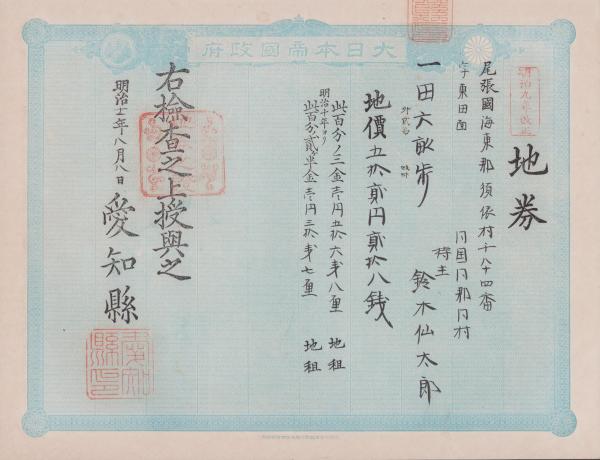 大日本帝國政府
明治九年改正
地券
尾張國海東郡須依村千八十四番
字東田面
同国同郡同村
持主 鈴木仙太郎
一田六畝歩
外貳歩
地價五拾貳円貳拾八銭
此百分ノ三金壱円五拾六銭八厘 地租
明治十年ヨリ
此百分ノ貳ヶ半金壱円三拾銭七厘 地租
右検査之上授與之
明治十一年八月八日
愛知縣
愛知縣印